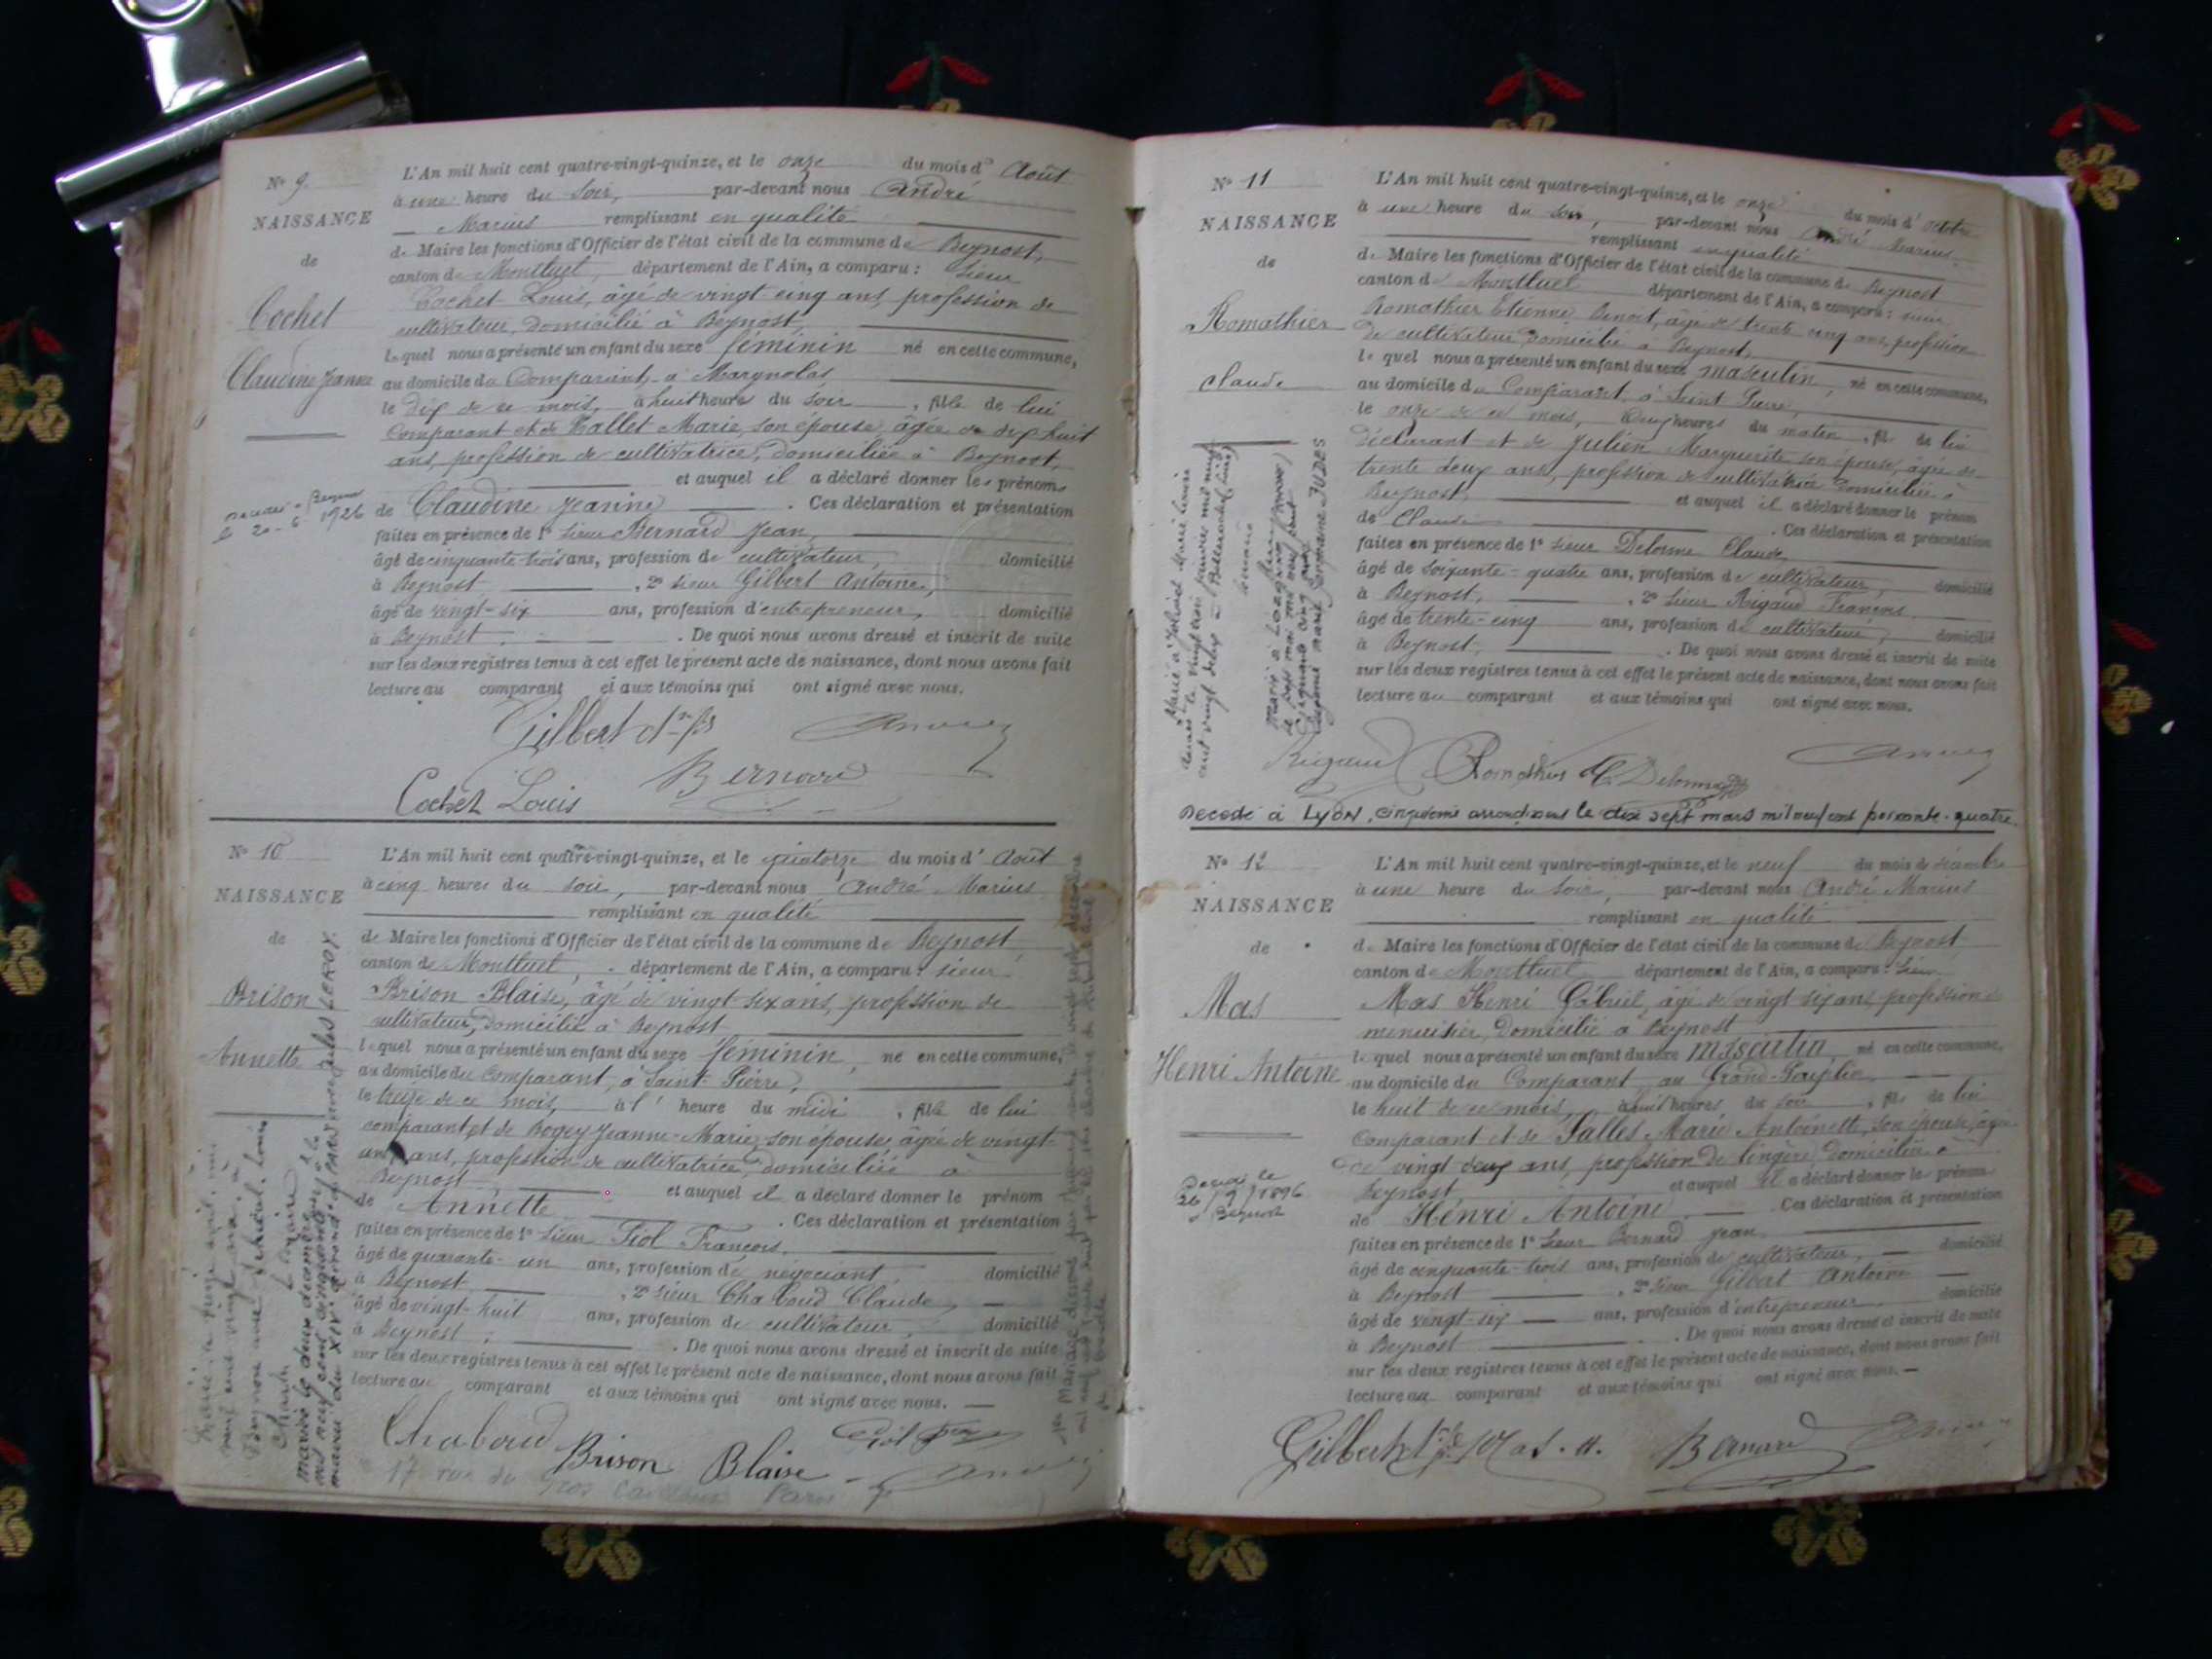 N° 9.
NAISSANCE
de
Cochet
Claudine Jeanne
L'An mil huit cent quatre-vingt-quinze, et le onze du mois d' Août
à une heure du soir, par-devant nous André
Marius remplissant en qualité
de Maire les fonctions d'Officier de l'état civil de la commune de Beynost,
canton de Montluel, département de l'Ain, a comparu : sieur
Cochet Louis, âgé de vingt cinq ans, profession de
cultivateur, domicilié à Beynost
lequel nous a présenté un enfant du sexe féminin né en cette commune,
au domicile du Comparant, à Margnolas,
le dix de ce mois, à huit heures du soir, fille de lui
Comparant et de Mallet Marie, son épouse, âgée de dix huit
ans, profession de cultivatrice, domiciliée à Beynost,
et auquel il a déclaré donner les prénoms
de Claudine Jeanne. Ces déclaration et présentation
faites en présence de 1° sieur Bernard Jean,
âgé de cinquante-trois ans, profession de cultivateur, domicilié
à Beynost, 2° sieur Gilbert Antoine,
âgé de vingt-six ans, profession d'entrepreneur, domicilié
à Beynost. De quoi nous avons dressé et inscrit de suite
sur les deux registres tenus à cet effet le présent acte de naissance, dont nous avons fait
lecture au comparant et aux témoins qui ont signé avec nous.
le 20-6-1926
Gilbert
Cochet Louis Bernard
N° 10
NAISSANCE
de
Brison
Annette
L'An mil huit cent quatre-vingt-quinze, et le quatorze du mois d' Août
à cinq heures du soir, par-devant nous André Marius
remplissant en qualité
de Maire les fonctions d'Officier de l'état civil de la commune de Beynost
canton de Montluel, département de l'Ain, a comparu : sieur
Brison Blaise, âgé de vingt-six ans, profession de
cultivateur, domicilié à Beynost
lequel nous a présenté un enfant du sexe féminin, né en cette commune,
au domicile du comparant, à Saint-Pierre,
le treize de ce mois, à l' heure du midi, fille de lui
comparant et de Bogey Jeanne-Marie, son épouse, âgée de vingt-
ans, profession de cultivatrice, domiciliée à
Beynost et auquel il a déclaré donner le prénom
de Annette. Ces déclaration et présentation
faites en présence de 1° sieur Fiol François,
âgé de quarante-un ans, profession de négociant domicilié
à Beynost, 2° sieur Chaboud Claude,
âgé de vingt-huit ans, profession de cultivateur, domicilié
à Beynost. De quoi nous avons dressé et inscrit de suite
sur les deux registres tenus à cet effet le présent acte de naissance, dont nous avons fait
lecture au comparant et aux témoins qui ont signé avec nous.
Chaboud Brison Blaise
17 rue du Gros Caillou Paris
N° 11
NAISSANCE
de
Romathier
Claude
L'An mil huit cent quatre-vingt-quinze, et le onze du mois d' octobre
à une heure du soir, par-devant nous André Marius
remplissant en qualité
de Maire les fonctions d'Officier de l'état civil de la commune de Beynost
canton de Montluel département de l'Ain, a comparu : sieur
Romathier Etienne Benoit, âgé de trente cinq ans, profession
de cultivateur, domicilié à Beynost,
lequel nous a présenté un enfant du sexe masculin, né en cette commune,
au domicile du Comparant, à Saint Pierre,
le onze de ce mois, à deux heures du matin, fils de lui
déclarant et de Julien Marguerite son épouse, âgée de
trente deux ans, profession de cultivatrice domiciliée à
Beynost, et auquel il a déclaré donner le prénom
de Claude. Ces déclaration et présentation
faites en présence de 1° sieur Delorme Claude,
âgé de soixante-quatre ans, profession de cultivateur, domicilié
à Beynost, 2° sieur Rigaud François
âgé de trente-cinq ans, profession de cultivateur, domicilié
à Beynost. De quoi nous avons dressé et inscrit de suite
sur les deux registres tenus à cet effet le présent acte de naissance, dont nous avons fait
lecture au comparant et aux témoins qui ont signé avec nous.
Rigaud Romathier C Delorme
Décédé à LYON, cinquième arrondissement le dix sept mars mil neuf cent soixante-quatre.
N° 12
NAISSANCE
de
Mas
Henri Antoine
L'An mil huit cent quatre-vingt-quinze, et le neuf du mois de décembre
à une heure du soir, par-devant nous André Marius
remplissant en qualité
de Maire les fonctions d'Officier de l'état civil de la commune de Beynost
canton de Montluel département de l'Ain, a comparu : sieur
Mas Henri Gabriel, âgé de vingt six ans, profession de
menuisier, domicilié à Beynost
lequel nous a présenté un enfant du sexe masculin, né en cette commune,
au domicile du Comparant au
le huit de ce mois, à huit heures du soir, fils de lui
Comparant et de Salles Marie Antoinette, son épouse, âgée
de vingt deux ans, profession de lingère, domiciliée à
Beynost et auquel il a déclaré donner les prénoms
de Henri Antoine. Ces déclaration et présentation
faites en présence de 1° sieur Bernard Jean
âgé de cinquante-trois ans, profession de cultivateur, domicilié
à Beynost, 2° sieur Gilbert Antoine
âgé de vingt-six ans, profession d'entrepreneur, domicilié
à Beynost. De quoi nous avons dressé et inscrit de suite
sur les deux registres tenus à cet effet le présent acte de naissance, dont nous avons fait
lecture au comparant et aux témoins qui ont signé avec nous.
Décédé le
26/9/1896
à Beynost
Gilbert Mas. H. Bernard